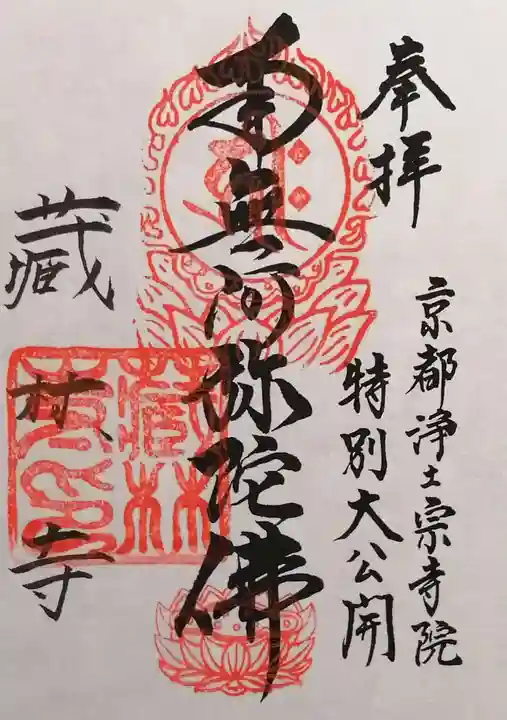 奉拝
京都浄土宗寺院
特別大公開
南無阿弥陀佛
蔵林寺
蔵林